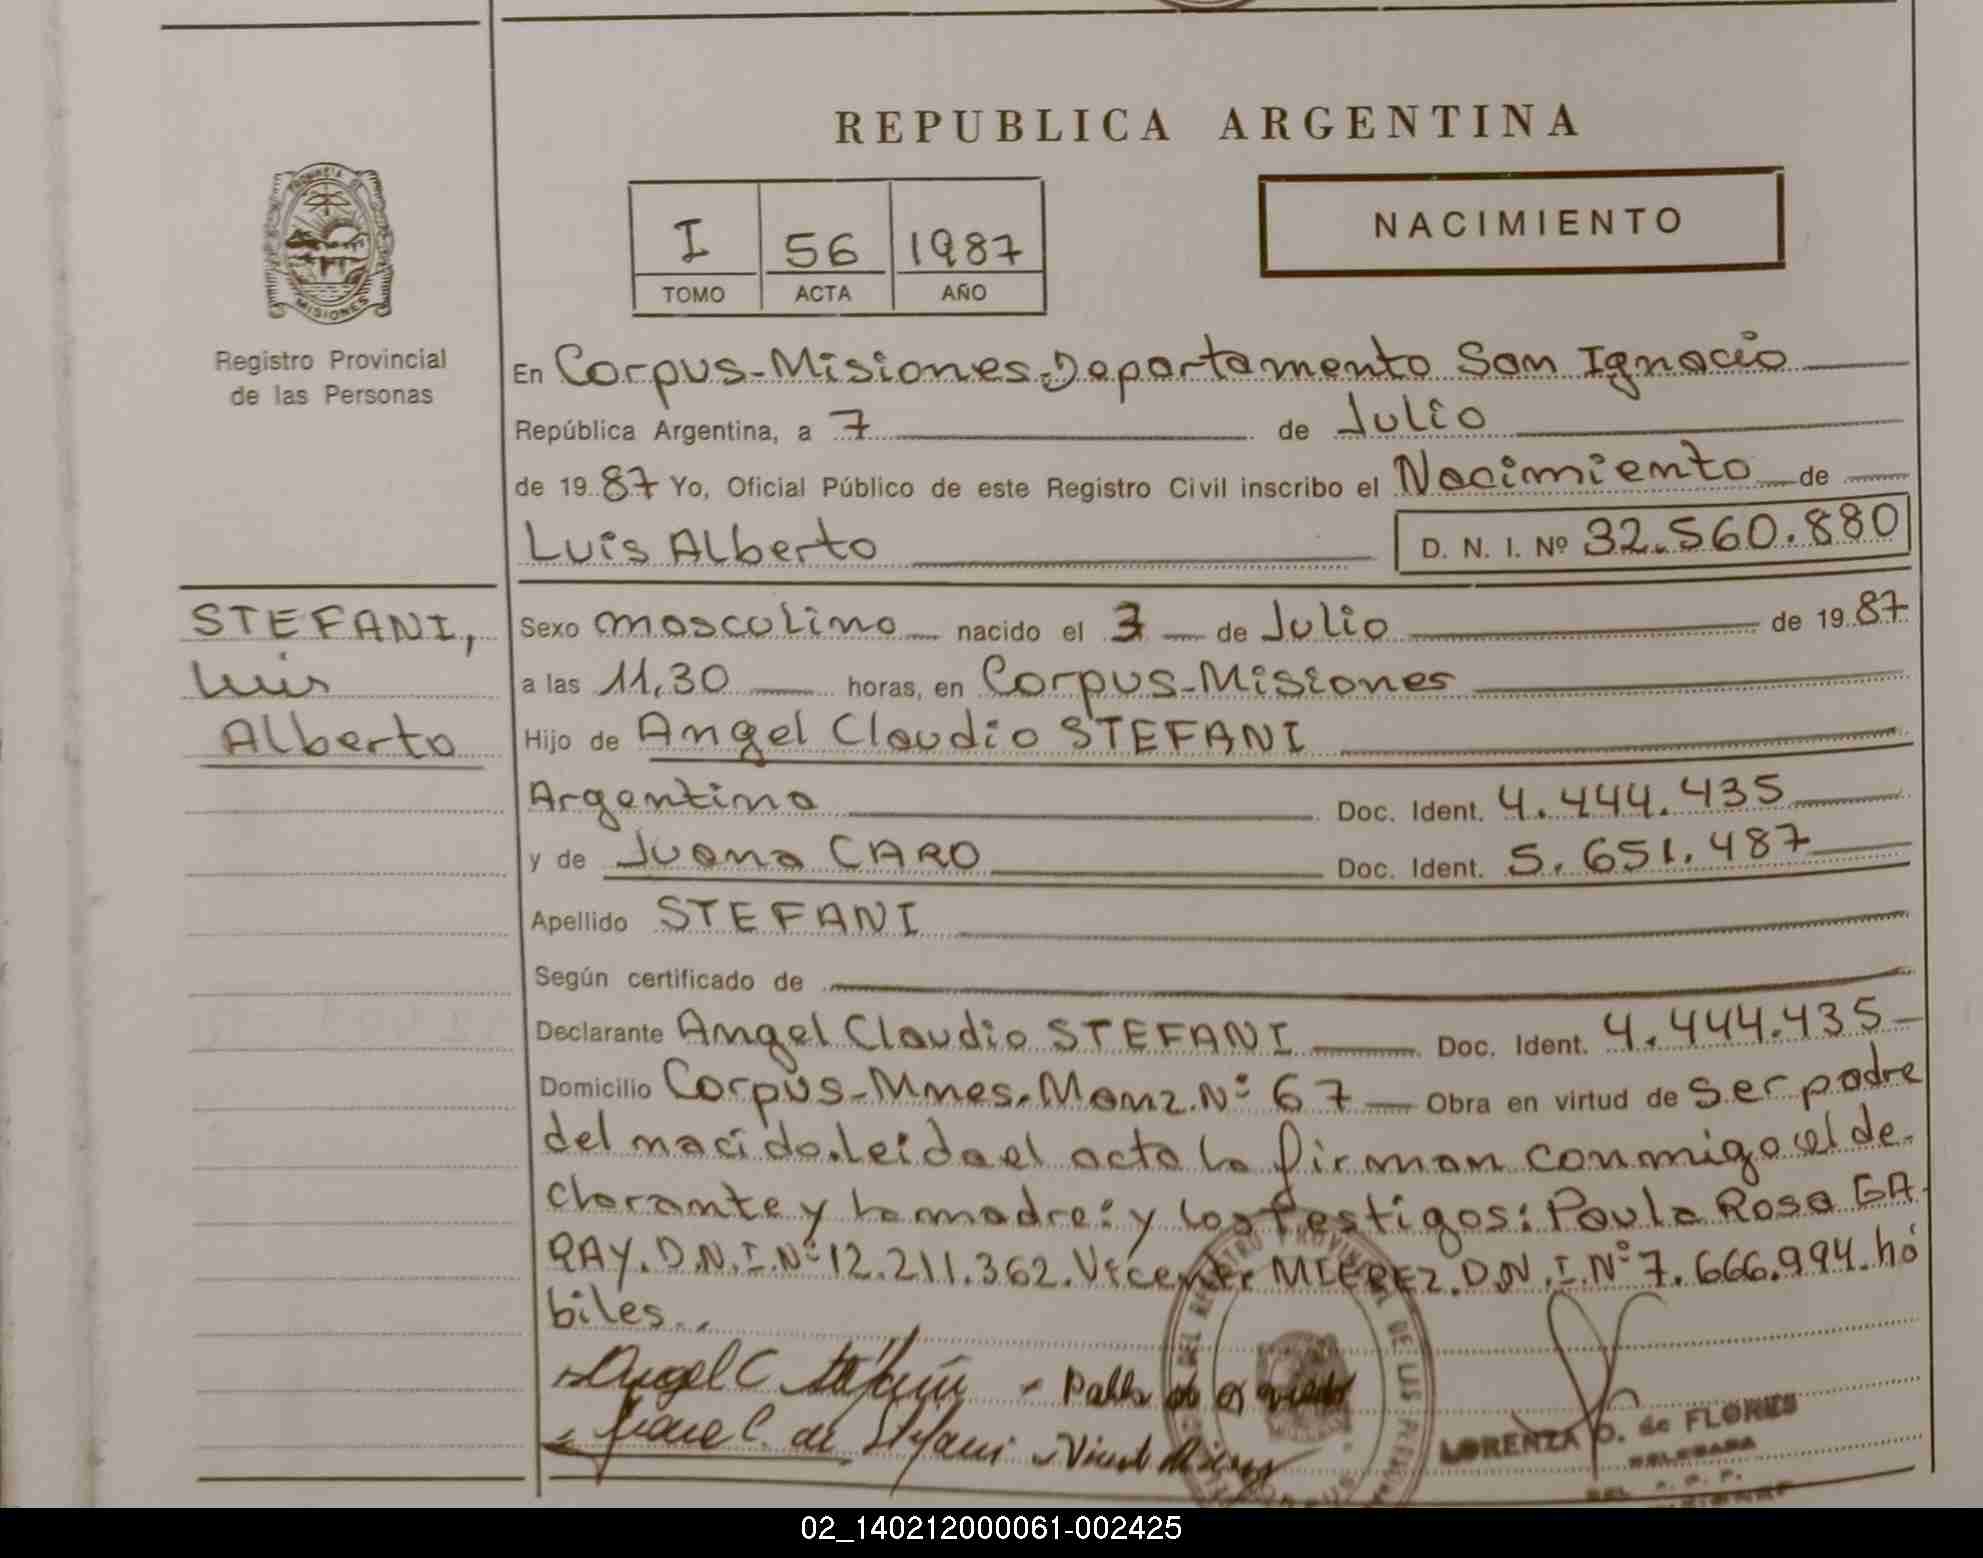 REPUBLICA ARGENTINA
PROVINCIA DE MISIONES
Registro Provincial
de las Personas
I 56 1987
TOMO ACTA AÑO
NACIMIENTO
En Corpus-Misiones-Departamento San Ignacio
República Argentina, a 7 de Julio
de 1987 Yo, Oficial Público de este Registro Civil inscribo el Nacimiento de
Luis Alberto D. N. I. Nº 32.560.880
STEFANI,
Luis
Alberto
Sexo masculino nacido el 3 de Julio de 1987
a las 11,30 horas, en Corpus-Misiones
Hijo de Angel Claudio STEFANI
Argentino Doc. Ident. 4.444.435
y de Juana CARO Doc. Ident. 5.651.487
Apellido STEFANI
Según certificado de
Declarante Angel Claudio STEFANI Doc. Ident. 4.444.435
Domicilio Corpus-Mnes. Manz. Nº 67 Obra en virtud de ser padre
del nacido. leida el acta la firman conmigo el de-
clarante y la madre: y los testigos: Paula Rosa GA-
RAY. D.N.I.Nº 12.211.362. Vicente MIEREZ. D.N.I.Nº 7.666.994. há
biles..
Angel C Stefani
Juana C. de Stefani
LORENZA O. de FLORES
DELEGADA
02_140212000061-002425